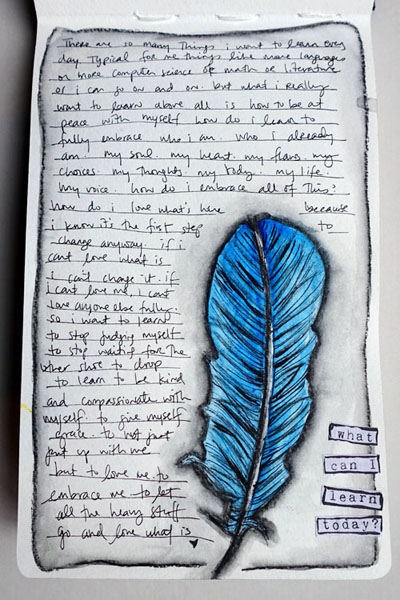 There are so many things i want to learn every
day. Typical for me things like more languages
or more computer science or math or literature
or i can go on and on. but what i really
want to learn above all is how to be at
peace with myself. how do i learn to
fully embrace who i am. who i already
am. my soul. my heart. my flaws. my
choices. my thoughts. my today. my life.
my voice. how do i embrace all of this?
how do i love what's here because
i know it's the first step to
change anyway. if i
cant love what is
i can't change it. if
i cant love me, i cant
love anyone else fully.
so i want to learn
to stop judging myself
to stop waiting for the
other shoe to drop
to learn to be kind
and compassionate with
myself. to give myself
grace. to not just
put up with me
but to love me. to
embrace me. to let
all the heavy stuff
go and love what is
what
can I
learn
today?